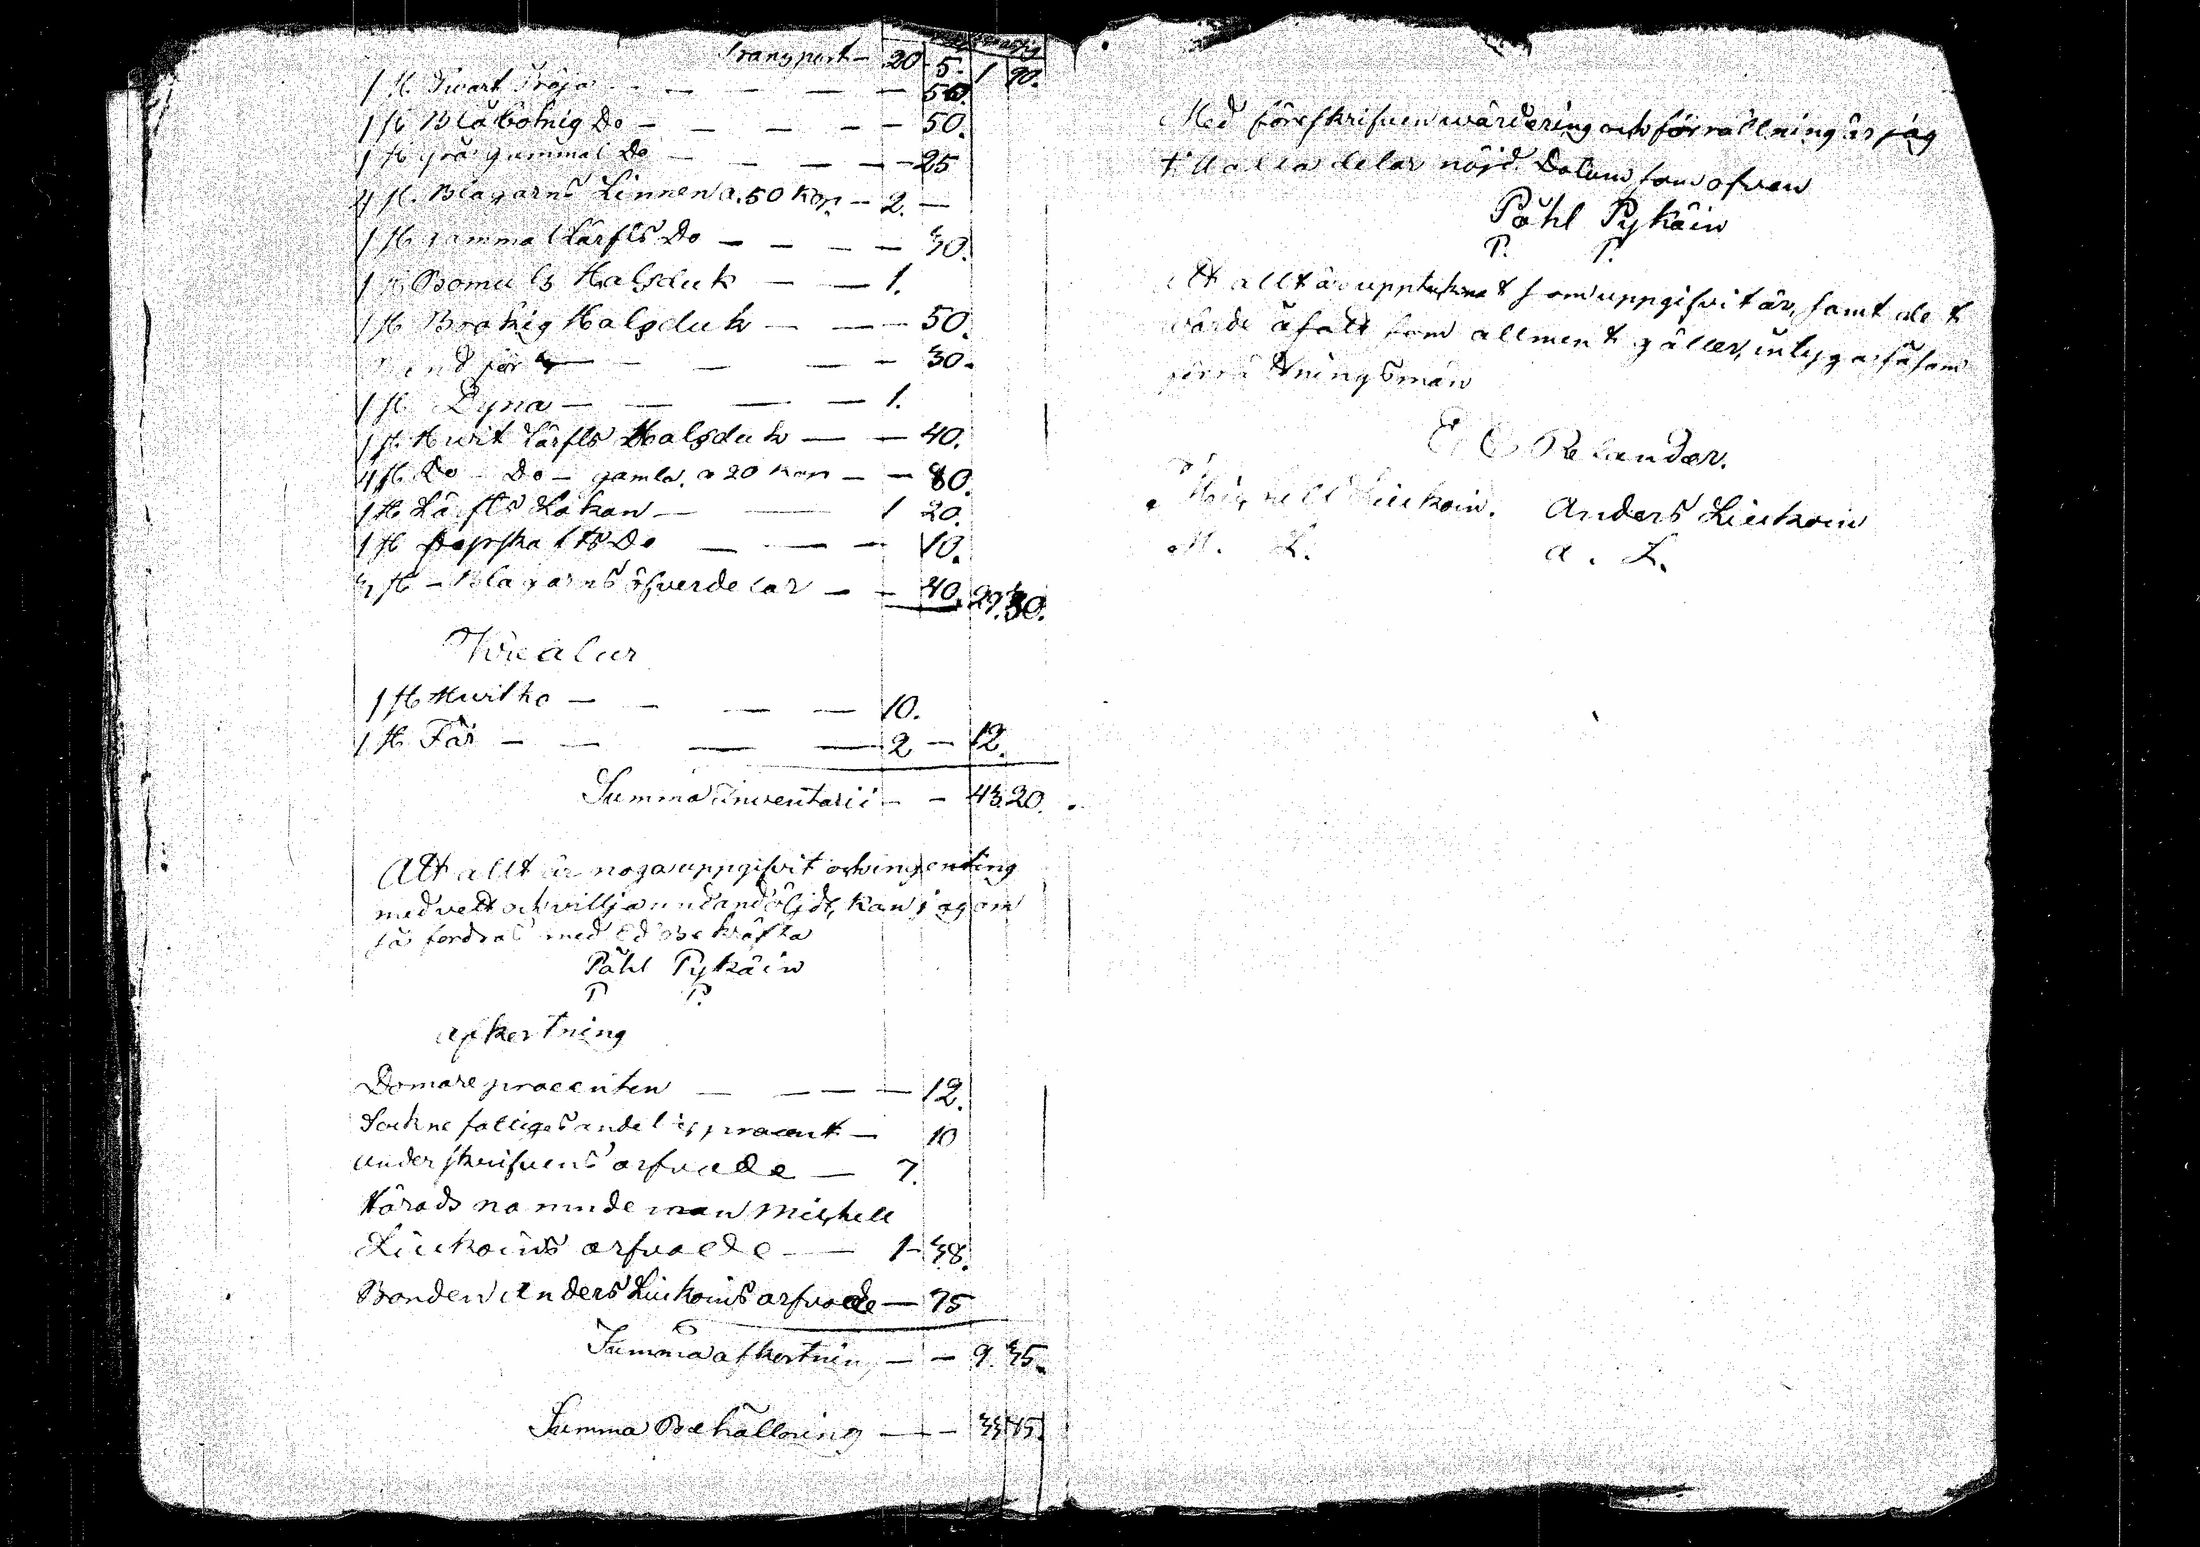 Transport — 20 5. 1 90.
1 st Svart Tröja — — — — — 50.
1 st Blåbotnig Do — — — — — 50.
1 st grå gammal Do — — — — 25
4 st. Blagarns Linnen a. 50 kop — 2. —
1 st gammal Lärfts Do — — — — 30.
1 st Bomuls Halsduk — — 1.
1 st Brokig Halsduk — — — 50.
för — — — — 30.
1 st Dyna — — — — 1.
1 st. Hvit Lärfts Halsduk — — 40.
4 st Do — Do — gamla. a 20 kop — — 80.
1 st Lärfts Lakan — — 1 20.
1 st Do — — — 10.
3 st — Blagarns öfverdelar — — 40. 29. 30.
Kreatur
1 st Hvit ko — — — — 10.
1 st Får — — — — 2 — 12.
Summa inventarii — — 43. 20.
Att allt är noga uppgifvit och ingenting
med vett och vilja undandöljdt, kan jag om
så fordras med Ed Bekräfta
Påhl Pykäin
P. P.
Afkortning
Domare procenten — — — — 12.
Sockne fattiges andel is procent — 10
underskrifvens arfvode — 7.
Härads nämndeman Michell
Liukoins arfvode — 1 — 38.
Bonden Anders Liukoins arfvode — 75
Summa afkortning — — 9. 35.
Summa Behållning — — — 33 85.
Med föreskrifven wärdering och förrättning är jag
till alla delar nöjd. Datum som ofvan
Påhl Pykäin
P. P.
Att allt är upptecknat som uppgifvit är, samt det
värde åsatt som allment gäller, intygar såsom
förrättningsmän
E E Relander.
Michell Liukoin. Anders Liukoin
M. L. A. L.